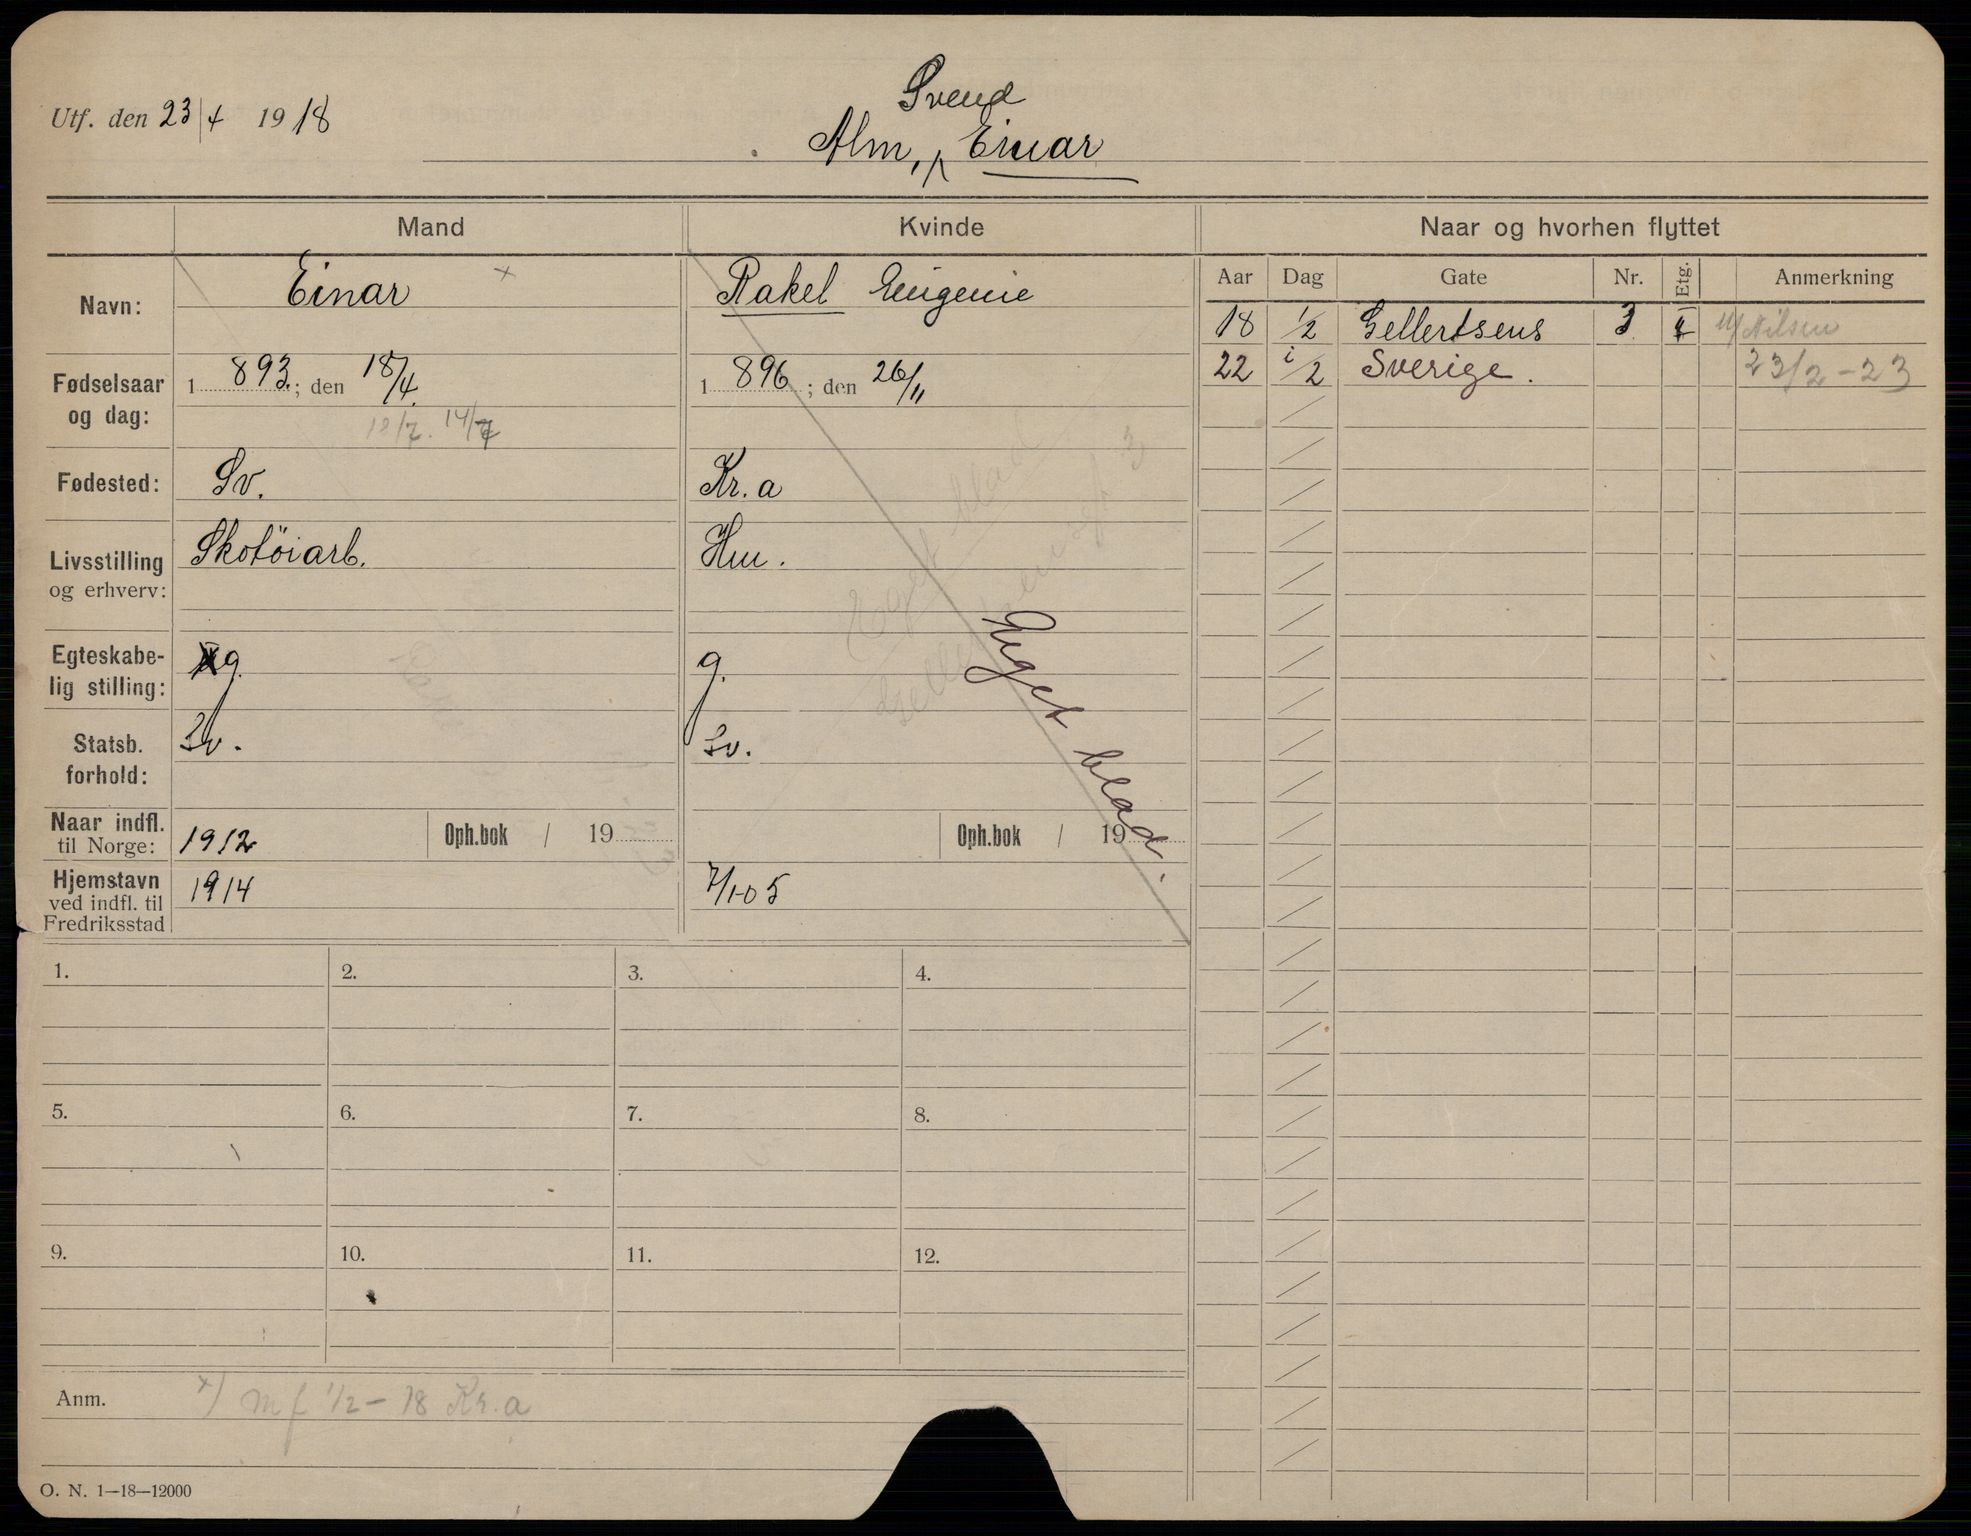 Utf. den 23/4 1918
Svend
Alm, Einar
Mand
Kvinde
Naar og hvorhen flyttet
Navn:
Einar ×
Rakel Eugenie
Aar Dag Gate Nr. Etg. Anmerkning
18 1/2 Gellertsens 3 Nilsen
22 1/2 Sverige. 23/2-23
Fødselsaar
og dag:
1893.; den 18/4.
1896; den 26/11
18/7. 14/7
Fødested:
Sv.
Kr.a
Livsstilling
og erhverv:
Skotöiarb.
Hu.
Eget blad
Egteskabe-
lig stilling:
g.
g.
Eget blad.
Statsb.
forhold:
Sv.
Sv.
Naar indfl.
til Norge:
1912
Oph.bok / 19
Oph.bok / 19
Hjemstavn
ved indfl. til
Fredriksstad
1914
7/1-05
1. 2. 3. 4.
5. 6. 7. 8.
9. 10. 11. 12.
Anm.
×) mf 1/2-18 Kr.a
O. N. 1—18—12000